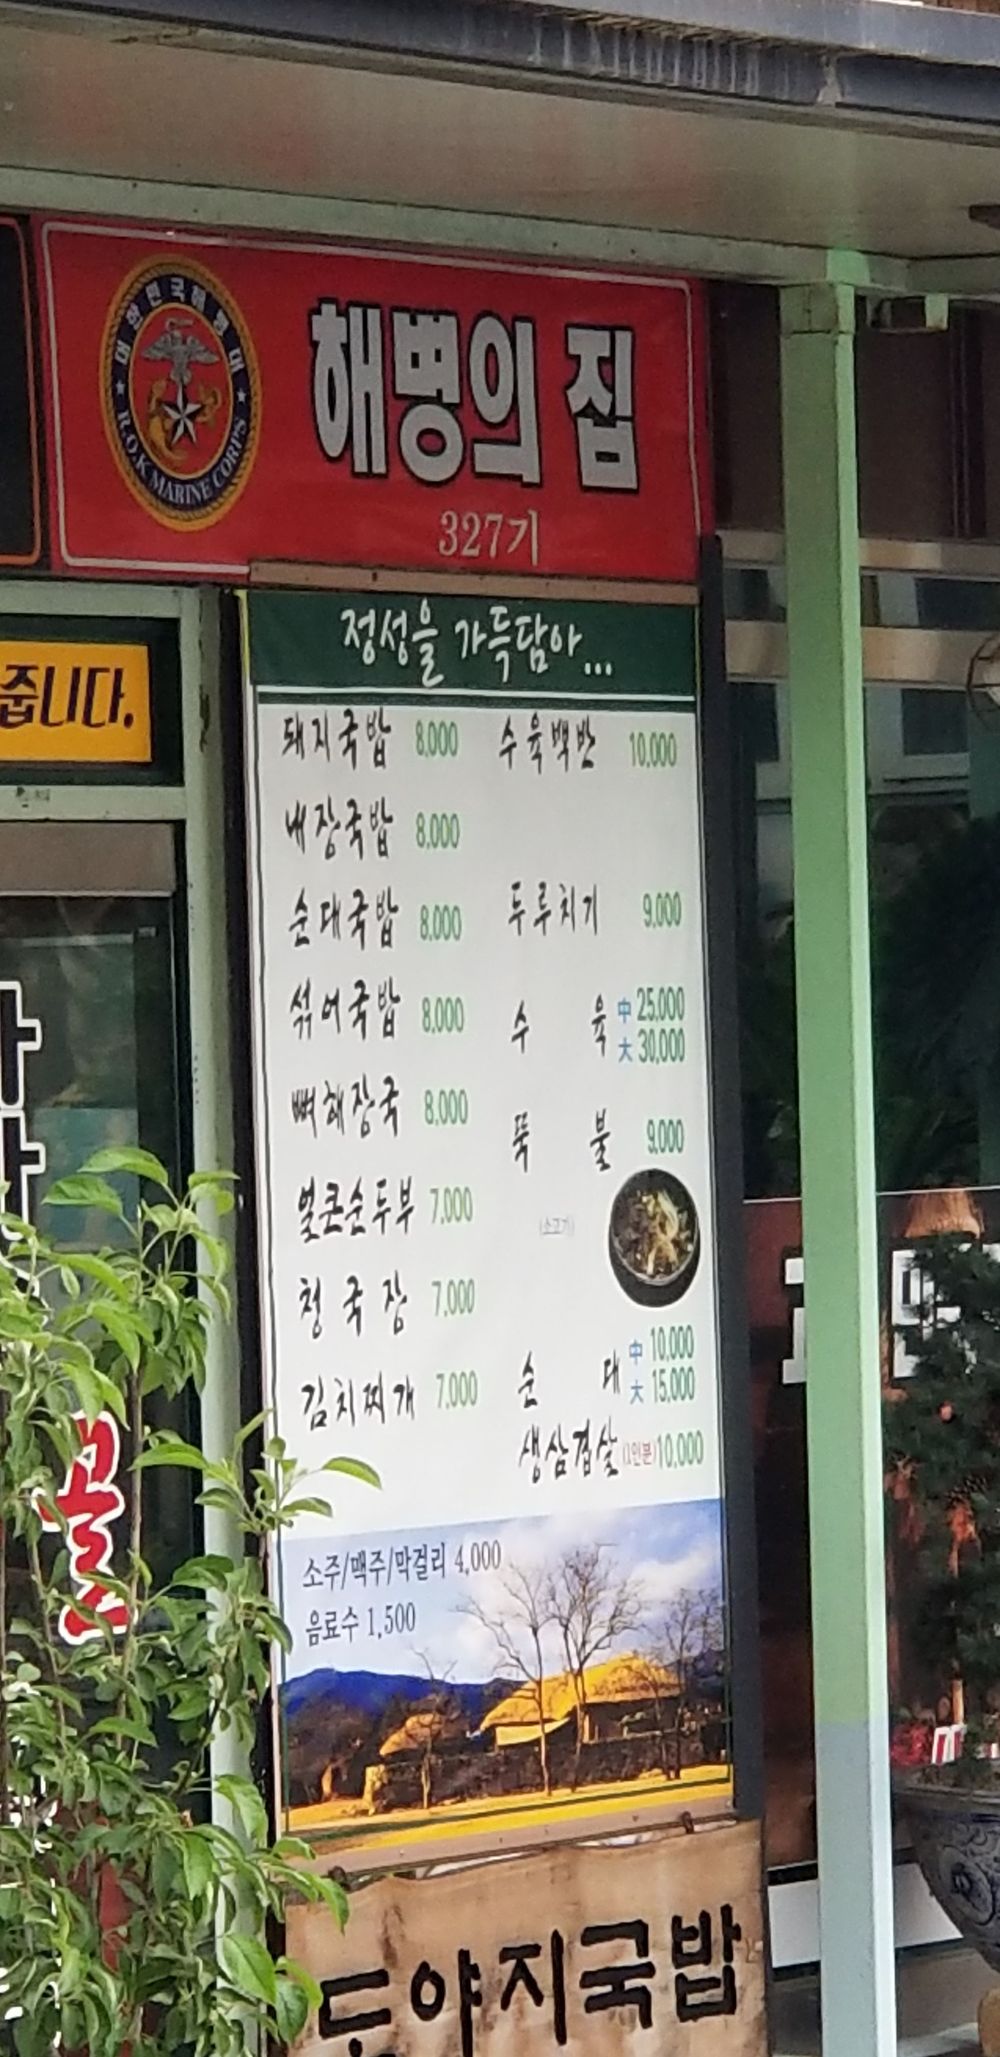 대한민국해병대
R.O.K MARINE CORPS
해병의 집
327기
줍니다.
정성을 가득담아...
돼지국밥 8,000
내장국밥 8,000
순대국밥 8,000
섞어국밥 8,000
뼈해장국 8,000
얼큰순두부 7,000
청국장 7,000
김치찌개 7,000
수육백반 10,000
두루치기 9,000
수육 中 25,000
大 30,000
뚝불 9,000
(소고기)
순대 中 10,000
大 15,000
생삼겹살 (1인분) 10,000
소주/맥주/막걸리 4,000
음료수 1,500
도야지국밥